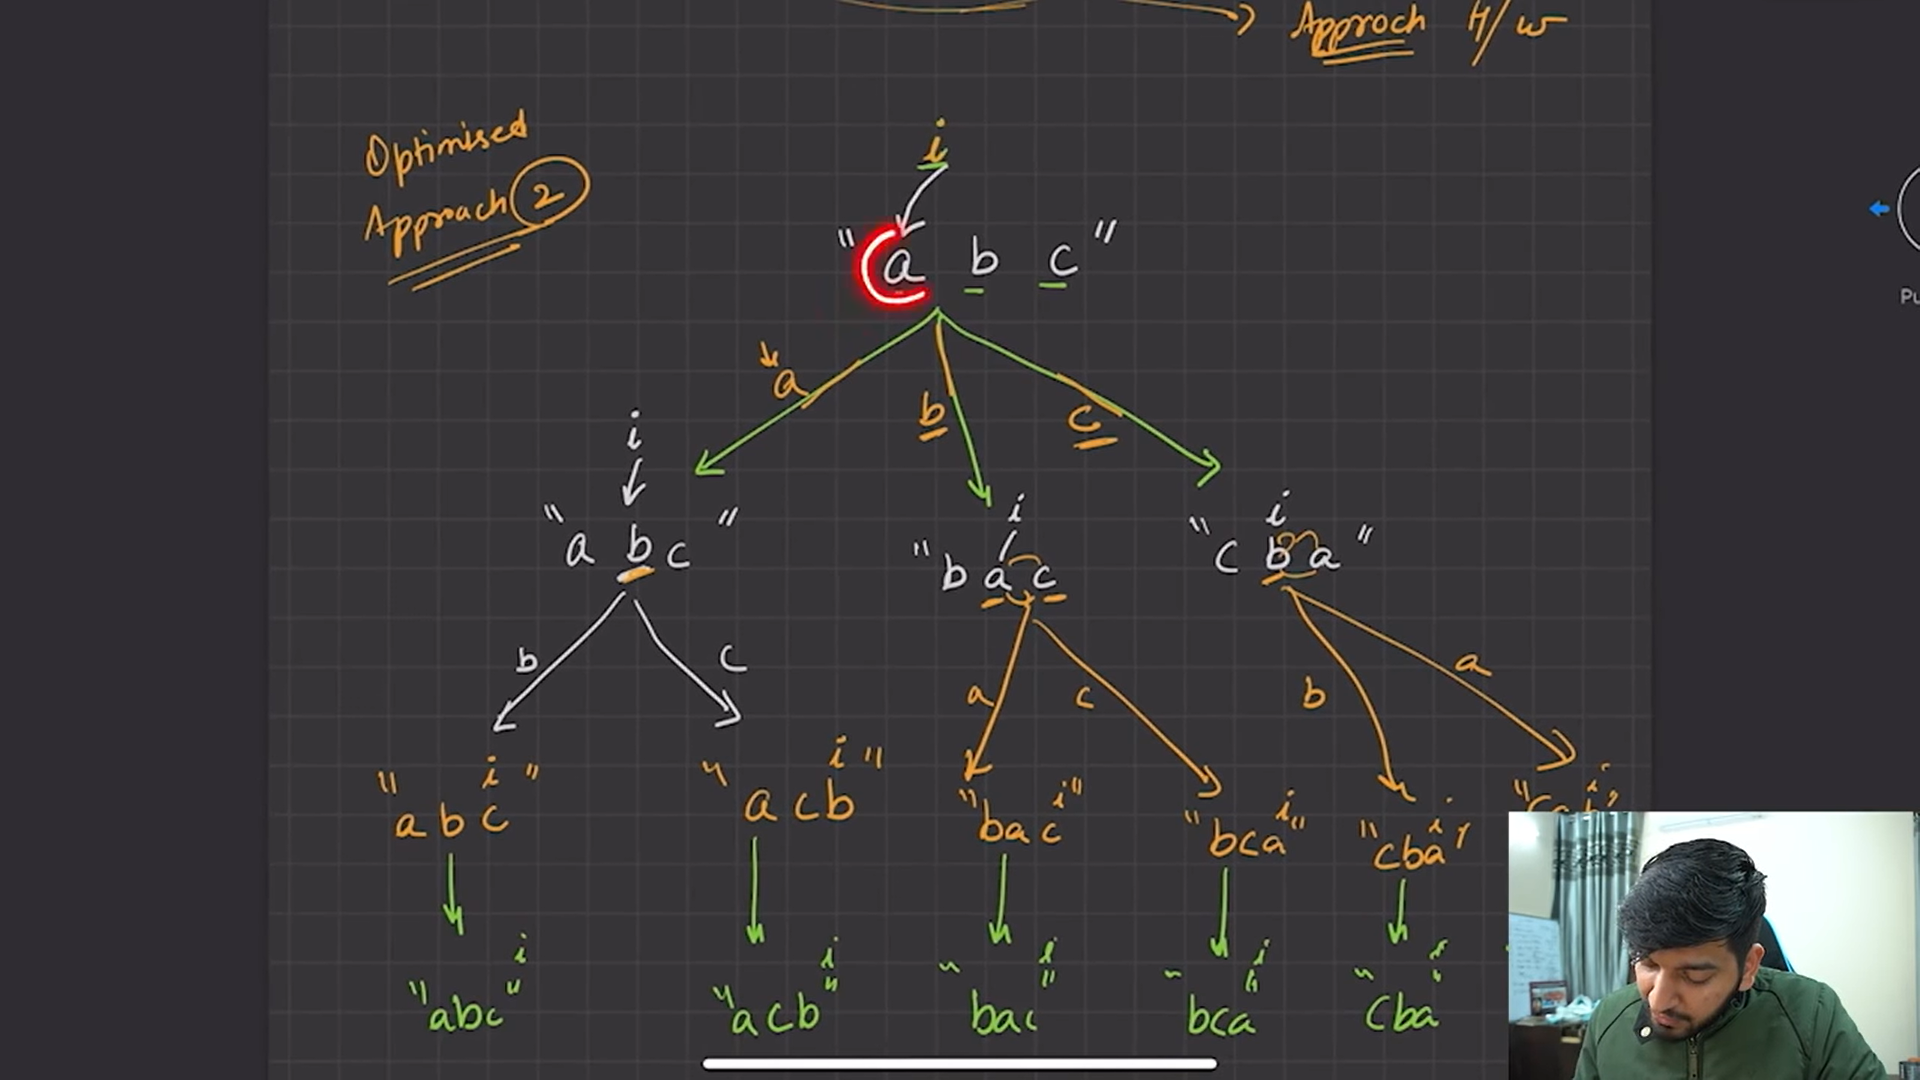 Approch H/w
Optimised
Approach 2
i
"a b c"
a b c
i
"a b c"
i
"b a c"
i
"c b a"
b c
a c
b a
i
"abc"
i
"acb"
i
"bac"
i
"bca"
i
"cba"
i
"abc"
i
"acb"
i
"bac"
i
"bca"
i
"cba"